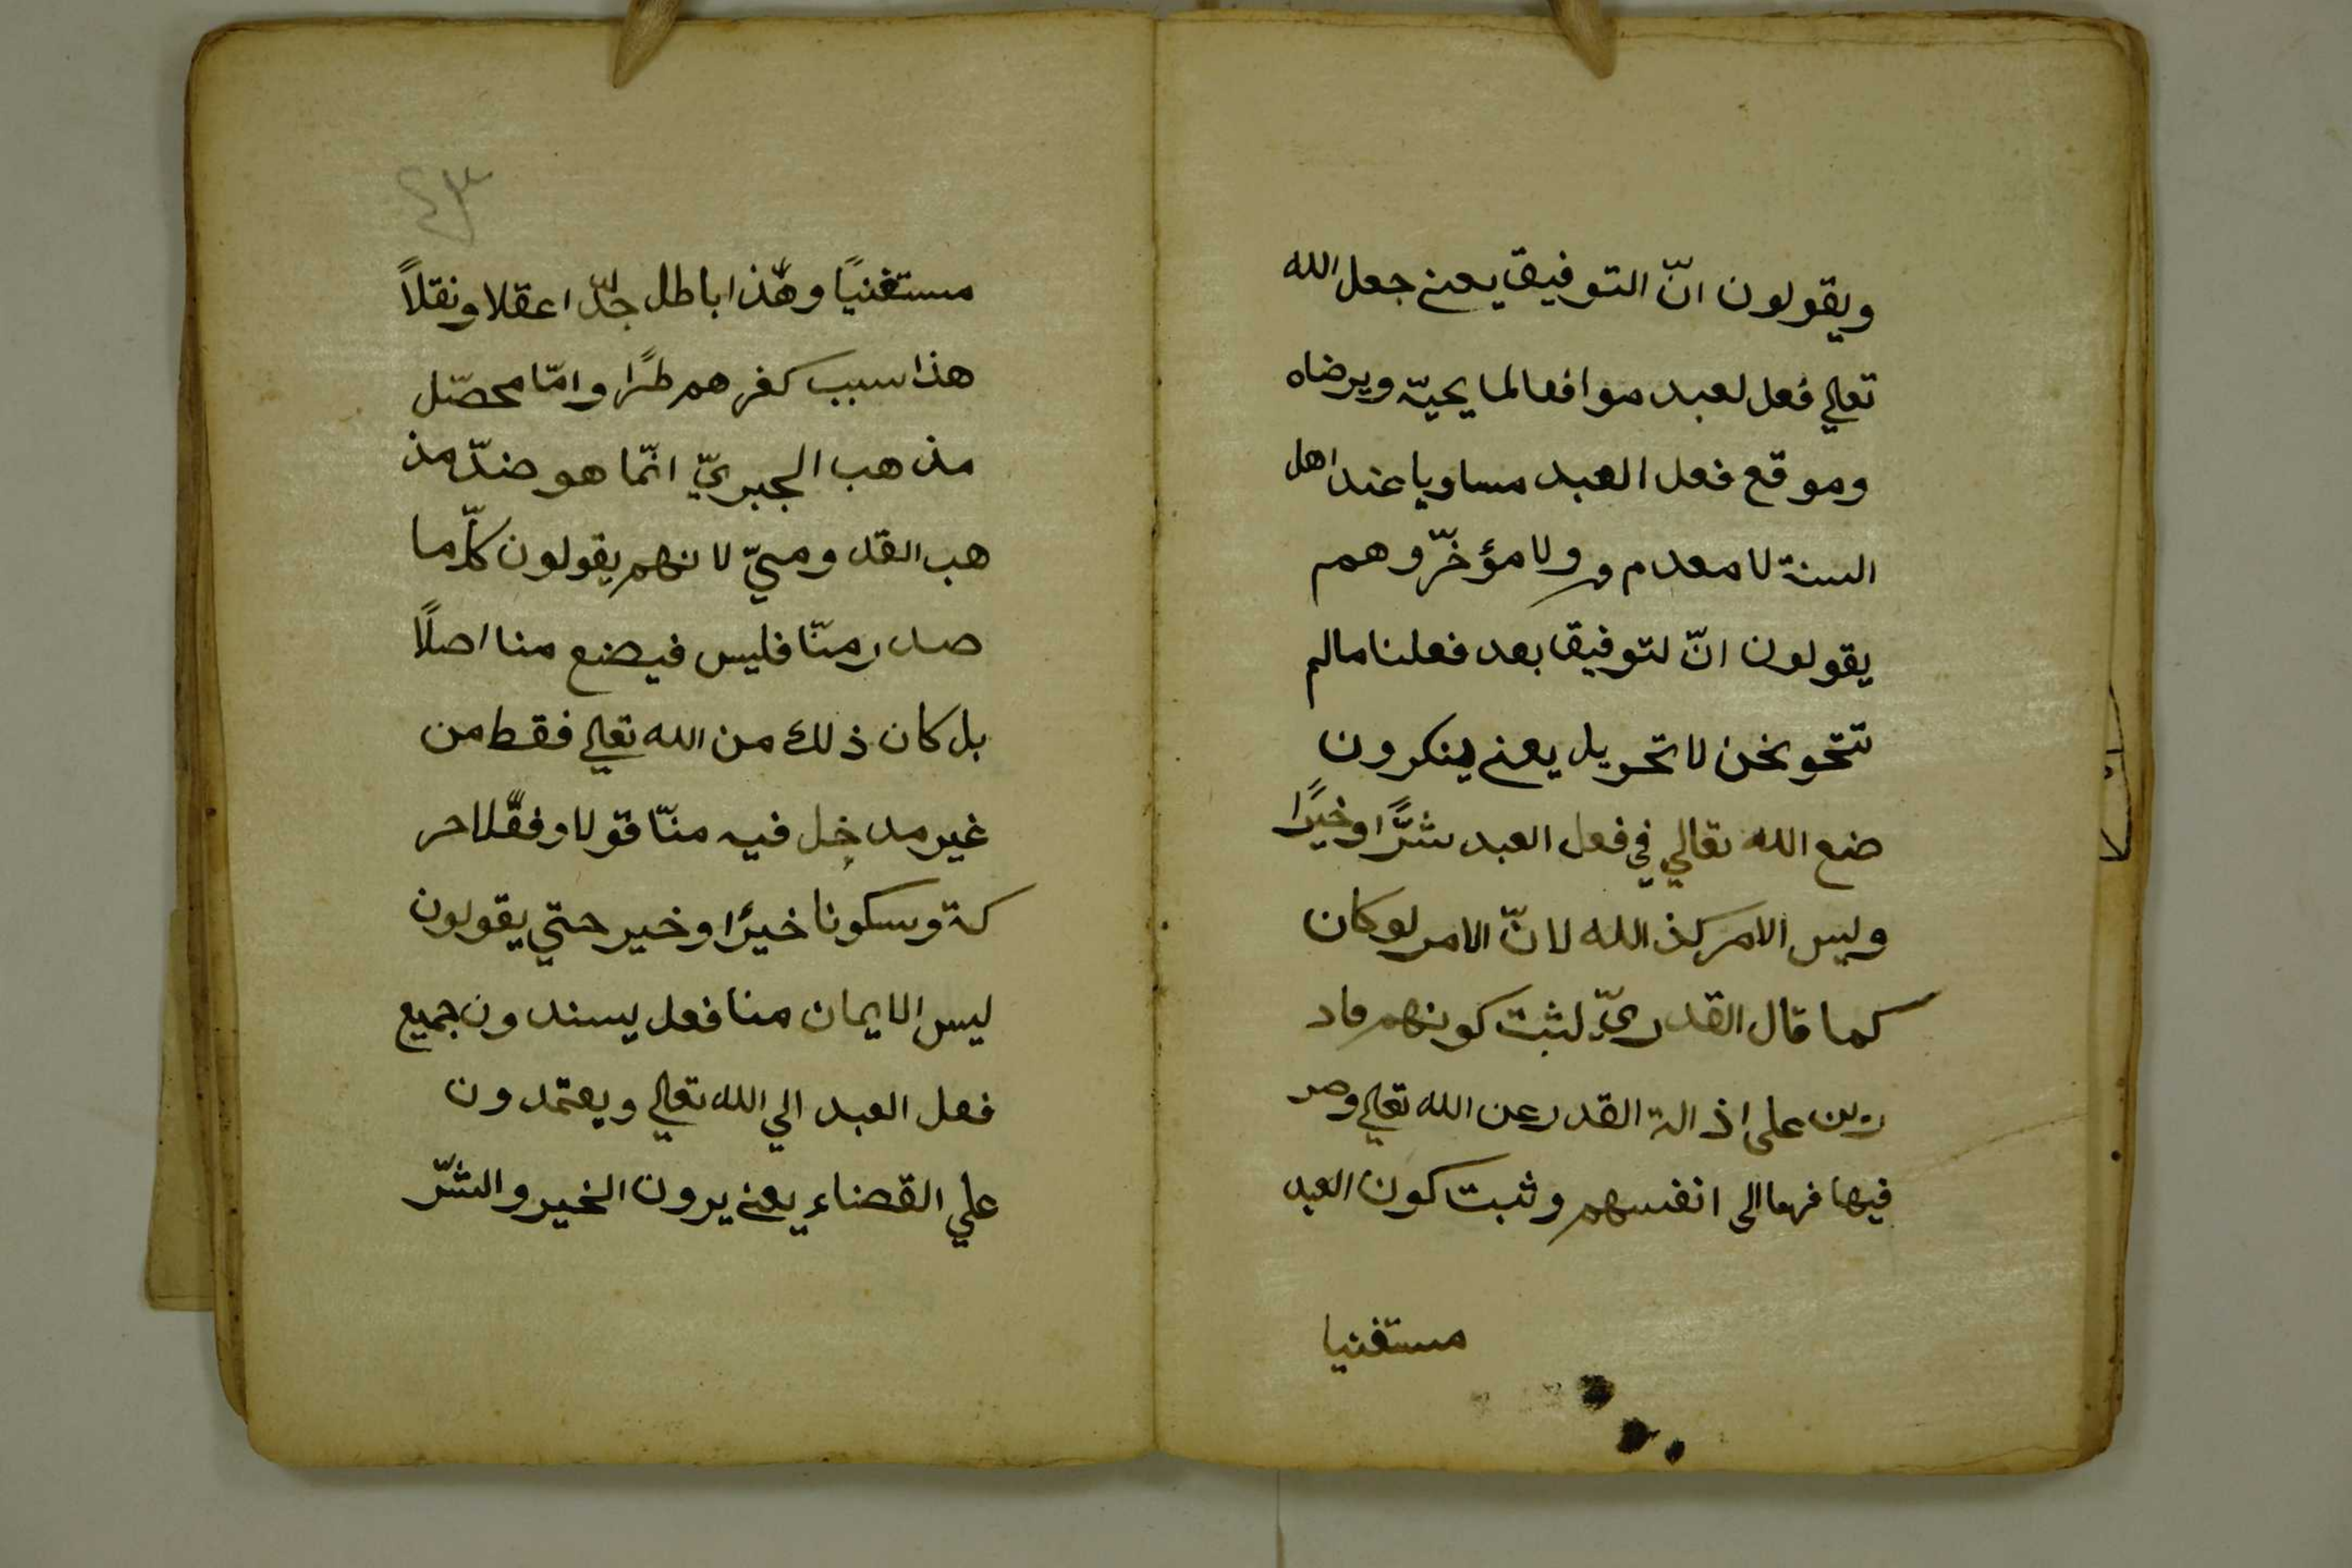 ويقولون انّ التوفيق يعني جعل الله
تعالي فعل لعبد موافعا لما يحبّه ويرضاه
وموقع فعل العبد مساويا عند اهل
السنة لا معدم و ولا مؤخّر وهم
يقولون انّ لتوفيق بعد فعلنا مالم
نتحو نحن لا تحويل يعني ينكرون
ضع الله تعالي في فعل العبد شرًّا وخيرًا
وليس الامر كذ الله لانّ الامر لو كان
كما قال القدريّ لثبت كونهم قاد
رين على اذالة القدر عن الله تعالي وصر
فيها الى انفسهم وثبت كون العبد
مستغنيا
٤٣
مستغنيًا وهٰذا باطل جدّا عقلا ونقلاً
هذا سبب كفرهم طرًا وامّا محصّل
مذهب الجبريّ انّما هو ضدّ مذ
هب القد وميّ لانهم يقولون كلّ ما
صدر منّا فليس فيضع منا اصلاً
بل كان ذلك من الله تعالي فقط من
غير مدخل فيه منّا قولا وفقًلا حر
كة وسكونا خيرًا وخير حتي يقولون
ليس الايمان منا فعل يسندون جميع
فعل العبد الي الله تعالي ويعتمدون
علي القضاء يعني يرون الخير والشرّ